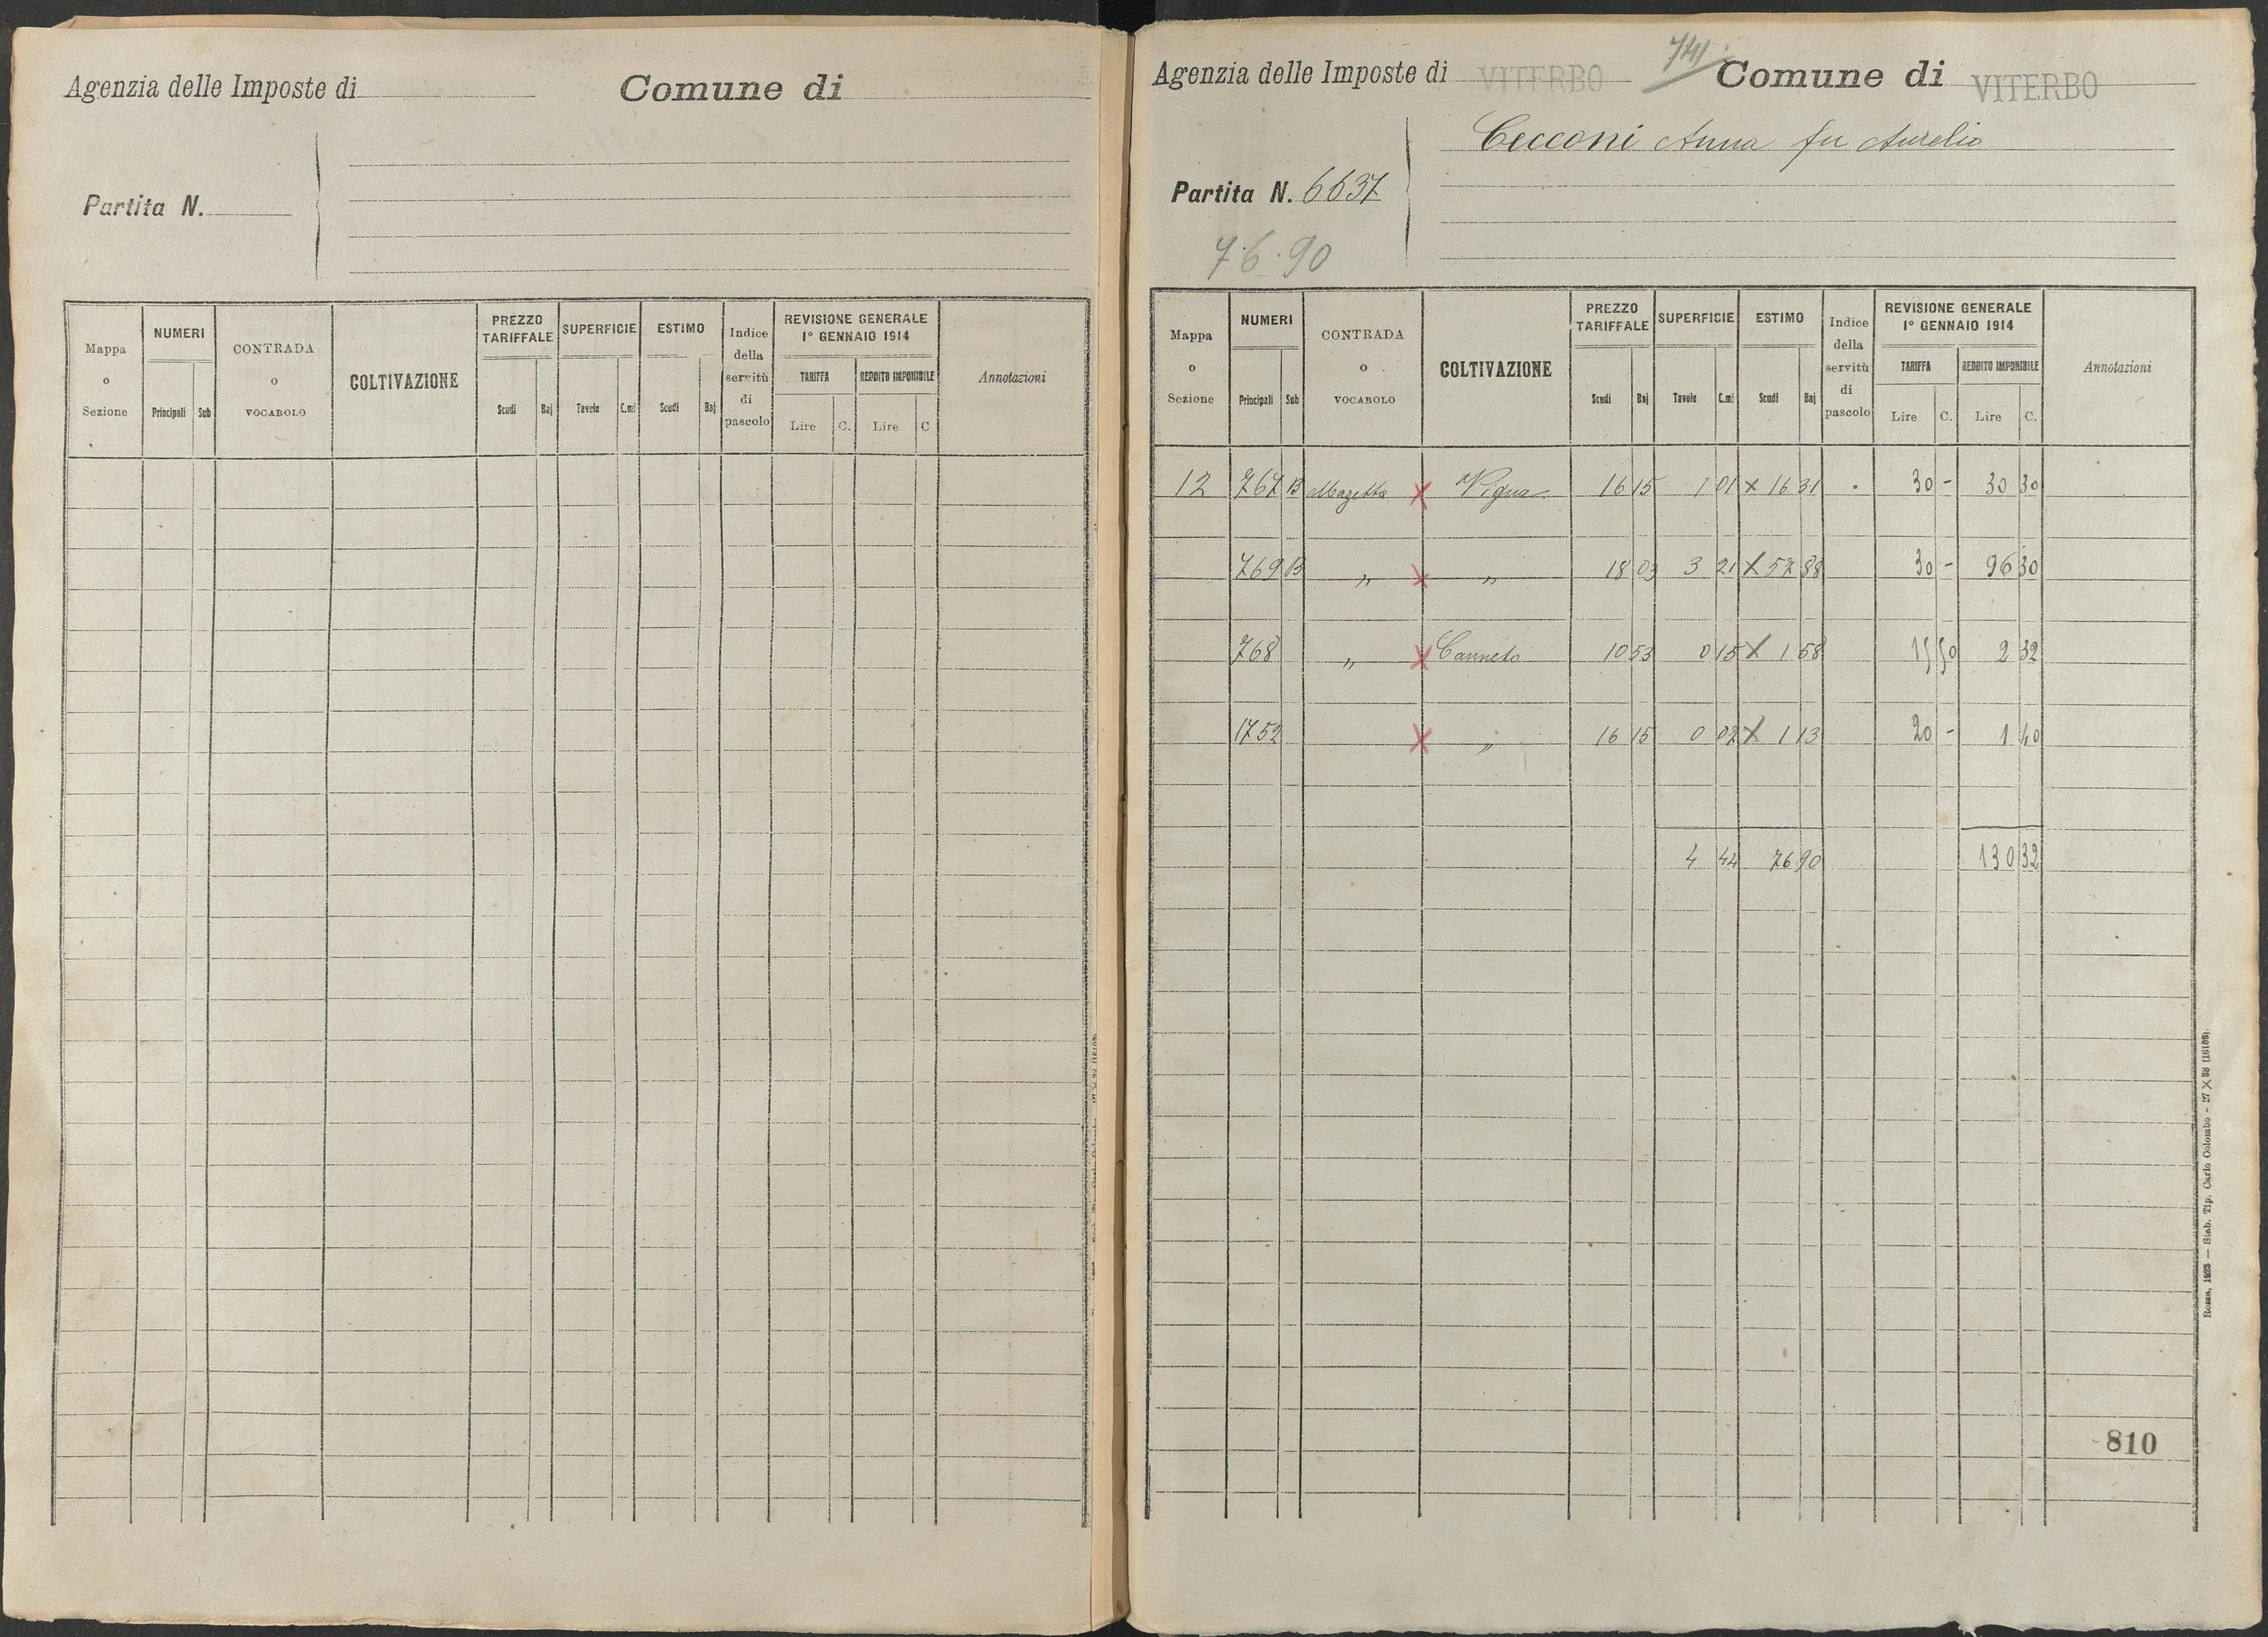 Agenzia delle Imposte di
Comune di
Partita N.
Mappa o Sezione
NUMERI
Principali Sub
CONTRADA o VOCABOLO
COLTIVAZIONE
PREZZO TARIFFALE
Scudi Baj
SUPERFICIE
Tavole C.mi
ESTIMO
Scudi Baj
Indice della servitù di pascolo
REVISIONE GENERALE
1° GENNAIO 1914
TARIFFA
Lire C.
REDDITO IMPONIBILE
Lire C
Annotazioni
741
Agenzia delle Imposte di VITERBO Comune di VITERBO
Cecconi Anna fu Aurelio
Partita N. 6637
76.90
Mappa o Sezione
NUMERI
Principali Sub
CONTRADA o VOCABOLO
COLTIVAZIONE
PREZZO TARIFFALE
Scudi Baj
SUPERFICIE
Tavole C.mi
ESTIMO
Scudi Baj
Indice della servitù di pascolo
REVISIONE GENERALE
1° GENNAIO 1914
TARIFFA
Lire C.
REDDITO IMPONIBILE
Lire C.
Annotazioni
12 767 B Mazzetta x Vigna 16 15 1 01 x 16 31 30 - 30 30
769 B " x " 18 03 3 21 x 57 88 30 - 96 30
768 " x Canneto 10 53 0 15 x 1 58 15 50 2 32
1752 x " 16 15 0 07 x 1 13 20 - 1 40
4 44 76 90 130 32
810
Roma, 1923 — Stab. Tip. Carlo Colombo - 27 X 38 (16106).